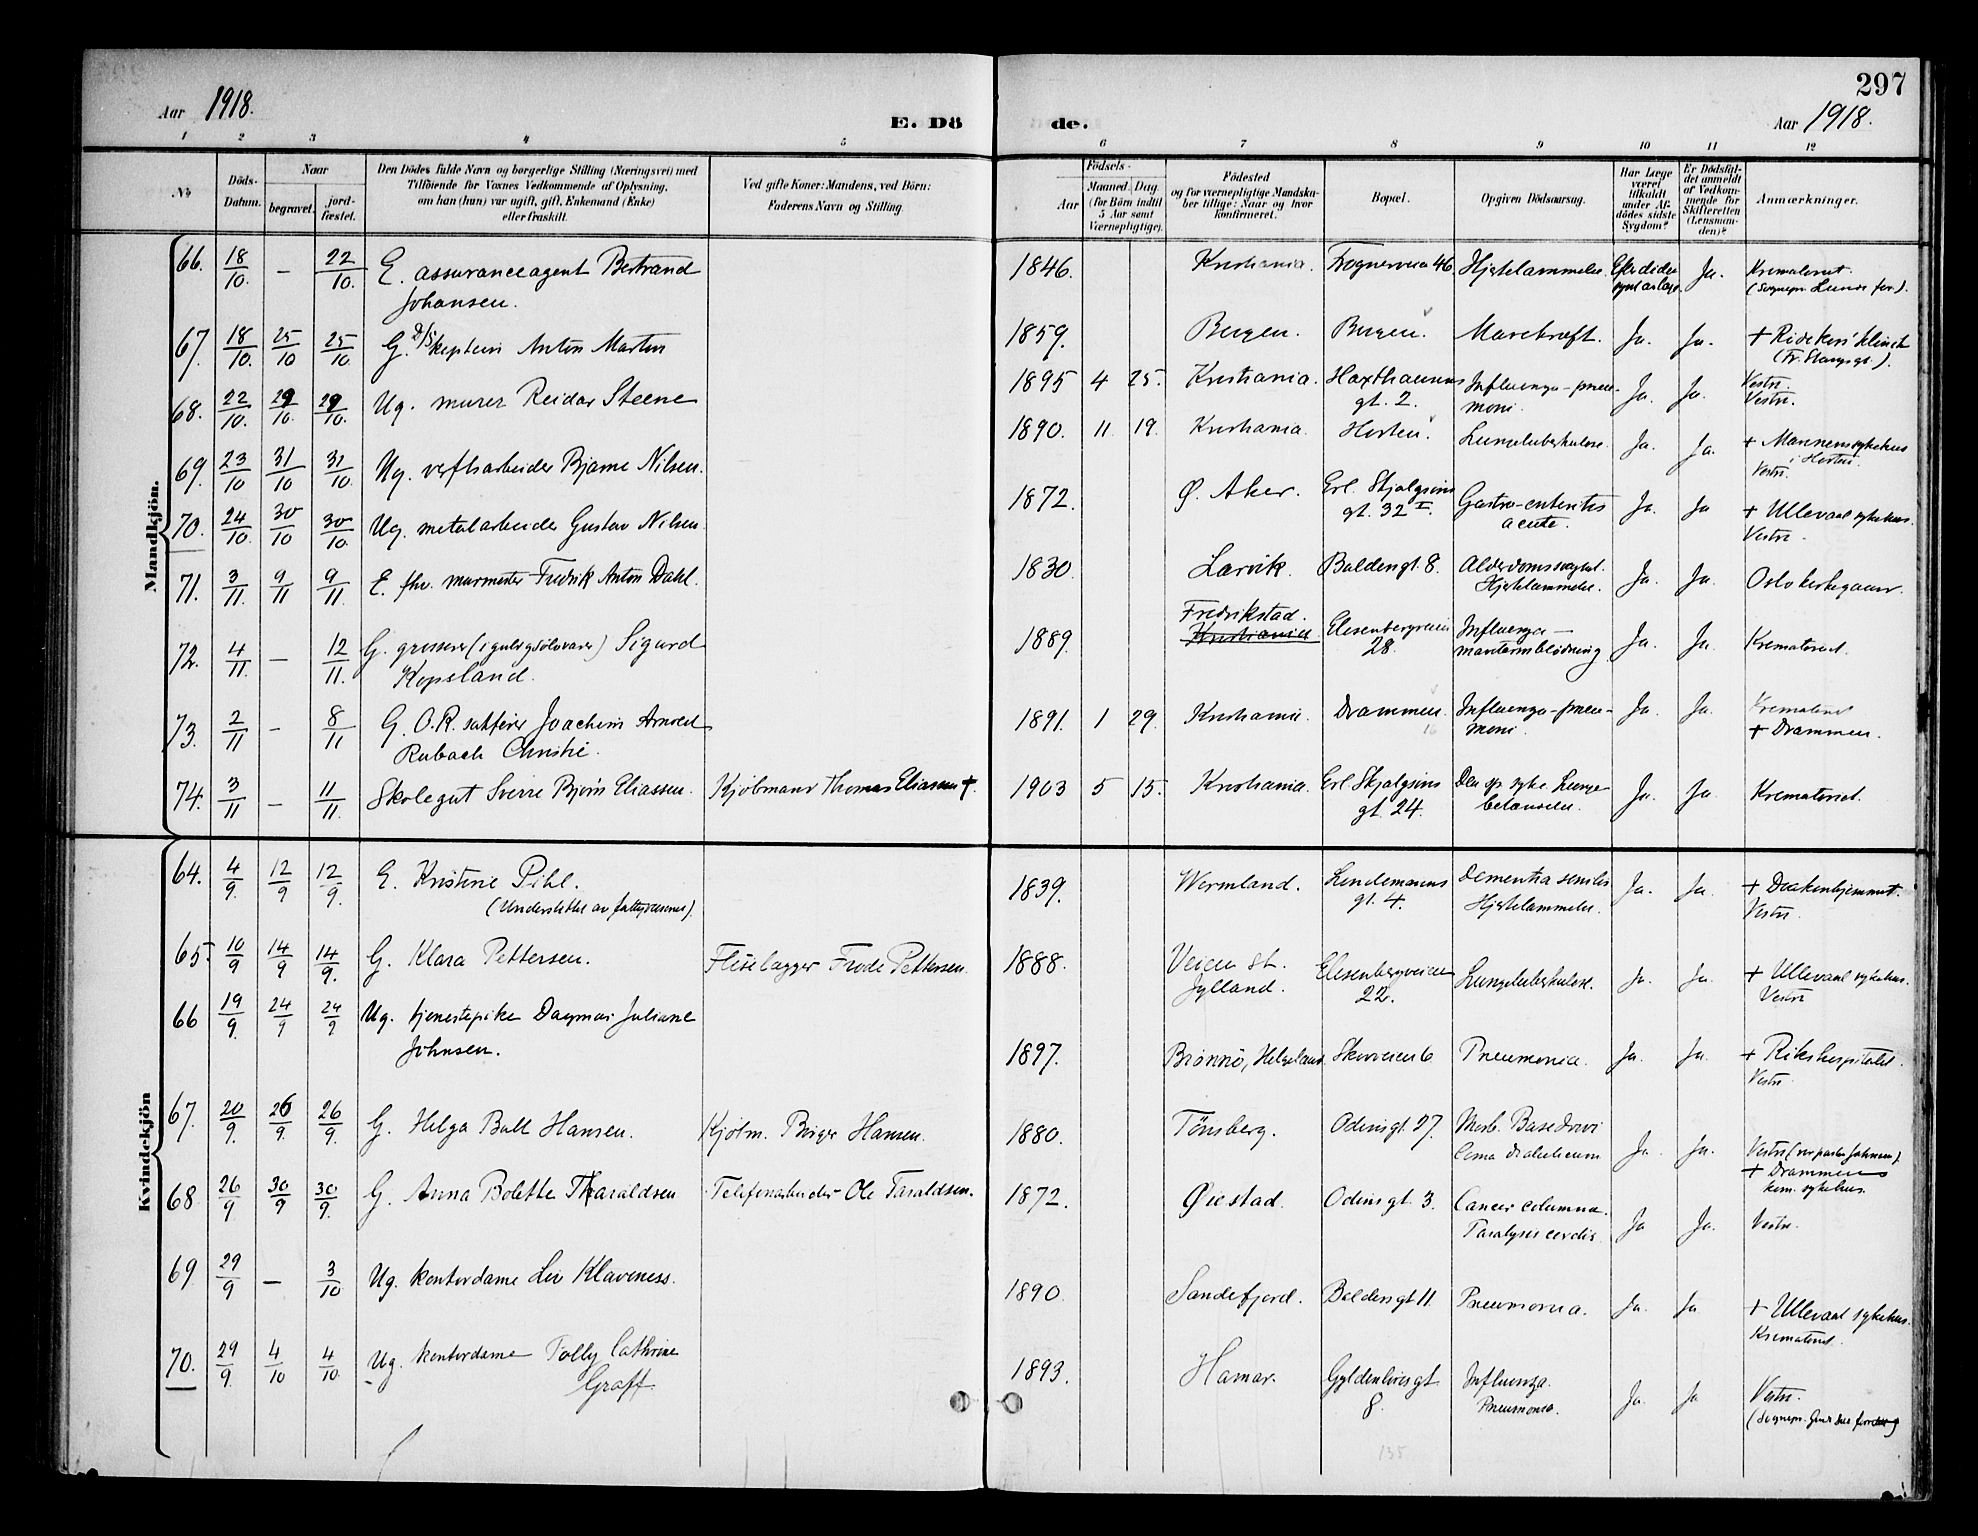 297
Aar 1918.
E. Dö
de.
Aar 1918.
1 2 3 4 5 6 7 8 9 10 11 12
No
Döds-
Datum.
Naar
begravet.
jord-
fæstet.
Den Dödes fulde Navn og borgerlige Stilling (Næringsvei) med
Tilföiende for Voxnes Vedkommende af Oplysning,
om han (hun) var ugift, gift, Enkemand (Enke)
eller fraskilt.
Ved gifte Koner: Mandens, ved Börn:
Faderens Navn og Stilling.
Födsels-
Aar
Maaned. Dag.
(for Börn indtil
5 Aar samt
Værnepligtige).
Födested
og for værnepligtige Mandska-
ber tillige: Naar og hvor
konfirmeret.
Bopæl.
Opgiven Dödsaarsag.
Har Læge
været
tilkaldt
under Af-
dödes sidste
Sygdom?
Er Dödsfal-
det anmeldt
af Vedkom-
mende for
Skifteretten
(Lensman-
den)?
Anmærkninger.
Mandkjön.
66. 18/10. – 22/10. E. assuranceagent Bertrand
Johansen.
1846. Kristiania. Frognerveien 46 Hjertelammelse. Ja. Krematoriet.
67. 18/10. 25/10 25/10 G. D/S kaptein Anton Martin
1859. Bergen. Bergen. Ja. Ja.
68. 22/10. 29/10. 29/10. Ug. murer Reidar Steene
1895 4 25. Kristiania. Haxthausens
gt. 2.
Influenza-pneu-
moni. Ja. Ja. Vestre.
Vestre.
69. 23/10 31/10 31/10. Ug. verftsarbeider Bjarne Nilsen.
1890. 11. 19. Kristiania. Horten. Lungetuberkulose. Ja. Ja. + Marinens sykehus
i Horten.
Vestre.
70. 24/10. 30/10 30/10. Ug. metalarbeider Gustav Nilsen.
1872. Ø. Aker. Erl. Skjalgsøns
gt. 32 II. Gastro-enteritis
acuta. Ja. Ja + Ullevaal sykehus.
Vestre.
71. 3/11. 9/11 9/11. E. fhv. murmester Fredrik Anton Dahl.
1830. Larvik. Baldersgt. 8. Alderdomssvaghet.
Hjertelammelse. Ja. Ja.
72. 4/11. – 12/11. G. grosserer (i guld og sølvvarer) Sigurd
Kopsland.
1889. Fredrikstad.
Kristiania Elisenbergveien
28. Influenza – Ja. Ja. Krematoriet.
73. 2/11 – 8/11 G. O.R. sakfører Joachim Arnold
Rubach Christie.
1891. 1 29. Kristiania. Drammen. Influenza-pneu-
moni. Ja. Ja. Krematoriet
+ Drammen.
74. 3/11 – 11/11 Skolegut Sverre Bjørn Eliassen. Kjøbmand Thomas Eliassen +.
1903 5 15. Kristiania. Erl. Skjalgsøns
gt. 24. Den sp. syke Lunge-
betændelse. Ja. Ja. Krematoriet.
Kvindekjön
64. 4/9. 12/9 12/9. E. Kristine Pihl.
(Understøttet av fattigvæsenet).
1839. Wermland. Lindemanns
gt. 4. Dementia senilis
Hjertelammelse. Ja. Ja.
Vestre.
65. 10/9 14/9 14/9. G. Klara Pettersen. Fliselægger Frode Pettersen.
1888. Veien St.
Jylland. Elisenbergveien
22. Lungetuberkulose. Ja. Ja. + Ullevaal sykehus.
Vestre
66 19/9. 24/9 24/9 Ug. tjenestepike Dagmar Juliane
Johnsen.
1897. Brønnø, Helgeland. Skovveien 6 Pneumonia. Ja. Ja. + Rikshospitalet.
Vestre.
67. 20/9. 26/9. 26/9. G. Helga Bull Hansen. Kjøbm. Birger Hansen.
1880. Tönsberg. Odinsgt. 27. Morb. Basedowi
Coma diabeticum Ja. Ja.
+ Drammens
kom. sykehus.
68. 26/9 30/9 30/9. G. Anna Bolette Tharaldsen Telefonarbeider Ole Taraldsen.
1872. Øiestad. Odinsgt. 3. Cancer columna.
Paralysis cordis. Ja Ja. Vestre.
69 29/9 – 3/10 Ug. kontordame Liv Klaveness.
1890 Sandefjord. Baldersgt 11. Pneumonia. Ja. Ja + Ullevaal sykehus.
Krematoriet.
70. 29/9. 4/10 4/10. Ug. kontordame Tolly Cathrine
Graff.
1893. Hamar. Gyldenløvesgt
8. Influenza.
Pneumonia. Ja. Ja Vestre.
135